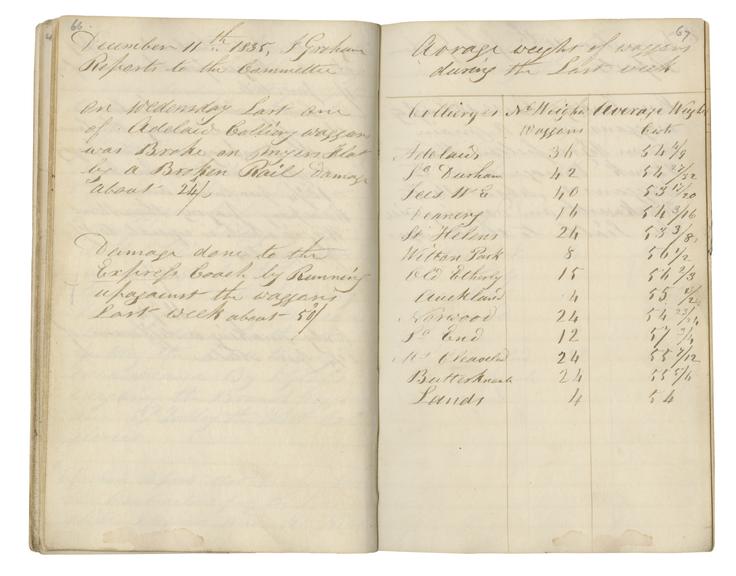 66
December 11th 1835, J Graham
Reports to the Committee
on Wedensday Last one
of Adelaid Colliery waggons
was Broke on Flat
by a Broken Rail Damage
about 24/
Damage done to the
Express Coach by Running
upagainst the waggons
Last week about 50/
67
Avrage weight of waggons
during the Last week
Collierges No Weighd Avarage Weight
Waggons Cwts
Adelaid 36 54 4/9
So Durham 42
40
Deanery 16 54 3/16
St Helens 24 53 3/8
Witton Park 8 56 1/2
Old Etherly 15 56 2/3
Auckland 4 55
Norwood 24 54 23/24
So End 12 57 3/4
24 55 7/12
24 55 5/6
Lunds 4 54